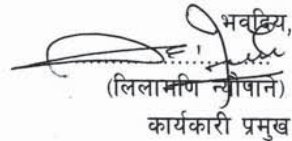 भवदिय,
(लिलामणि न्यौपाने)
कार्यकारी प्रमुख